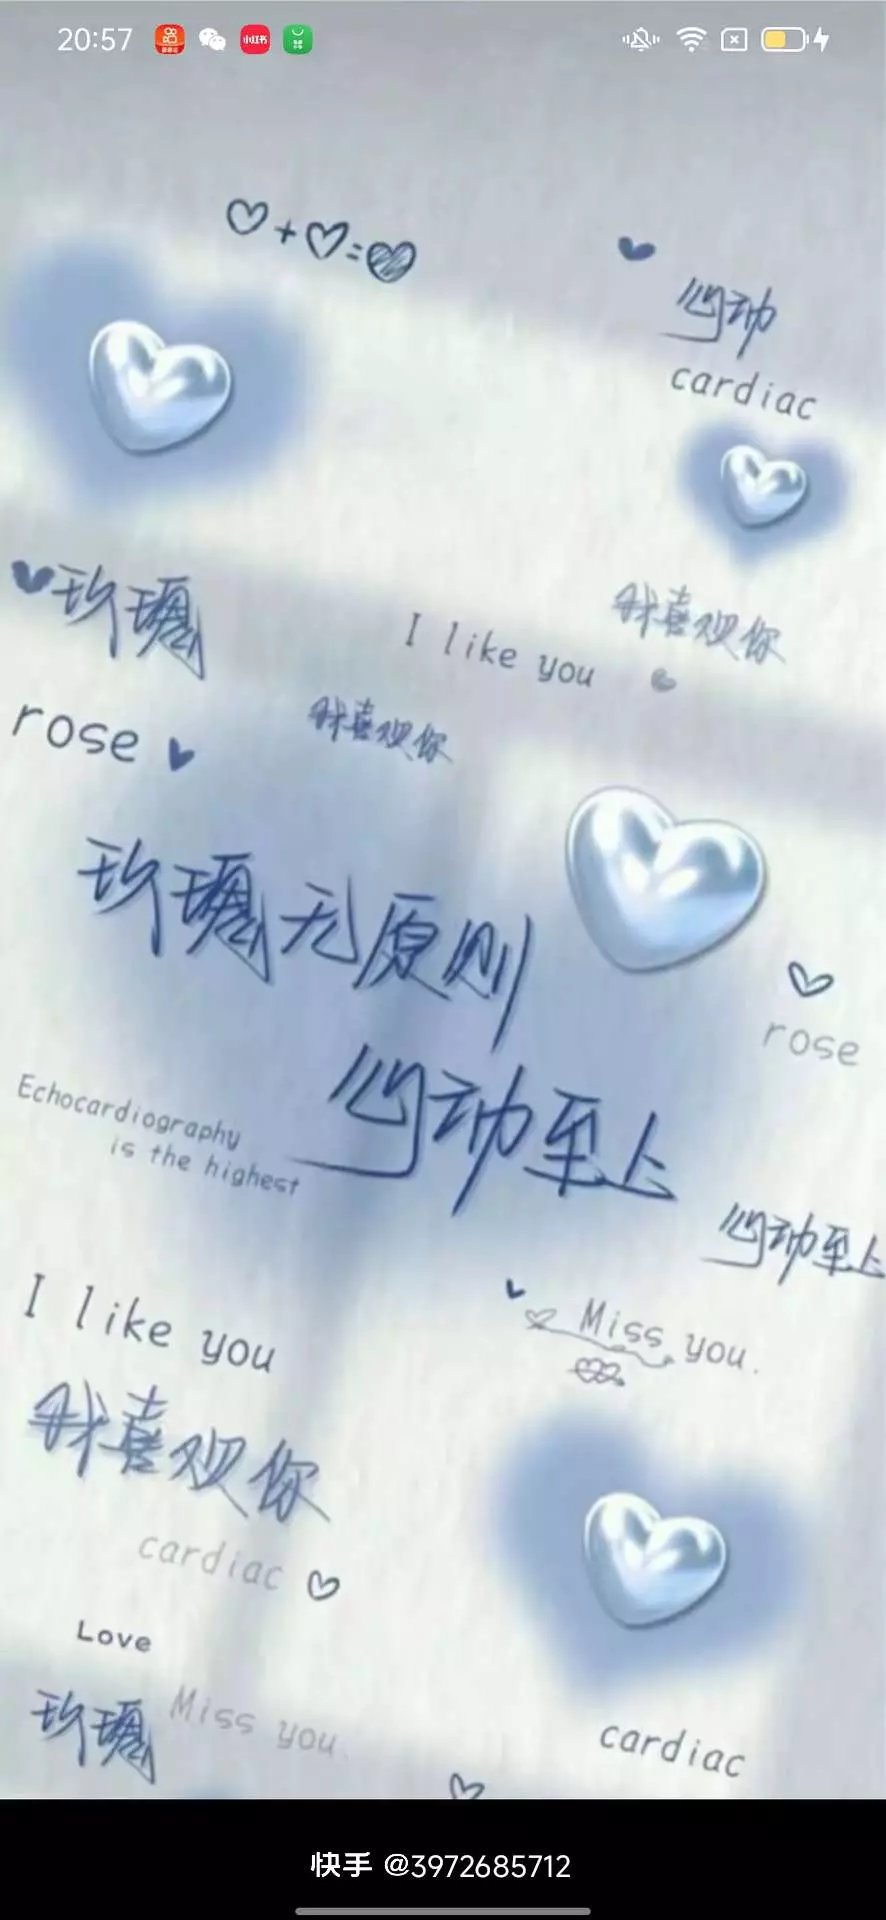 20:57
小红书
+ =
心动
cardiac
玫瑰
I like you
我喜欢你
rose
我喜欢你
玫瑰无原则
rose
心动至上
Echocardiography
is the highest
心动至上
I like you
Miss you.
我喜欢你
cardiac
Love
玫瑰
Miss you.
cardiac
快手 @3972685712